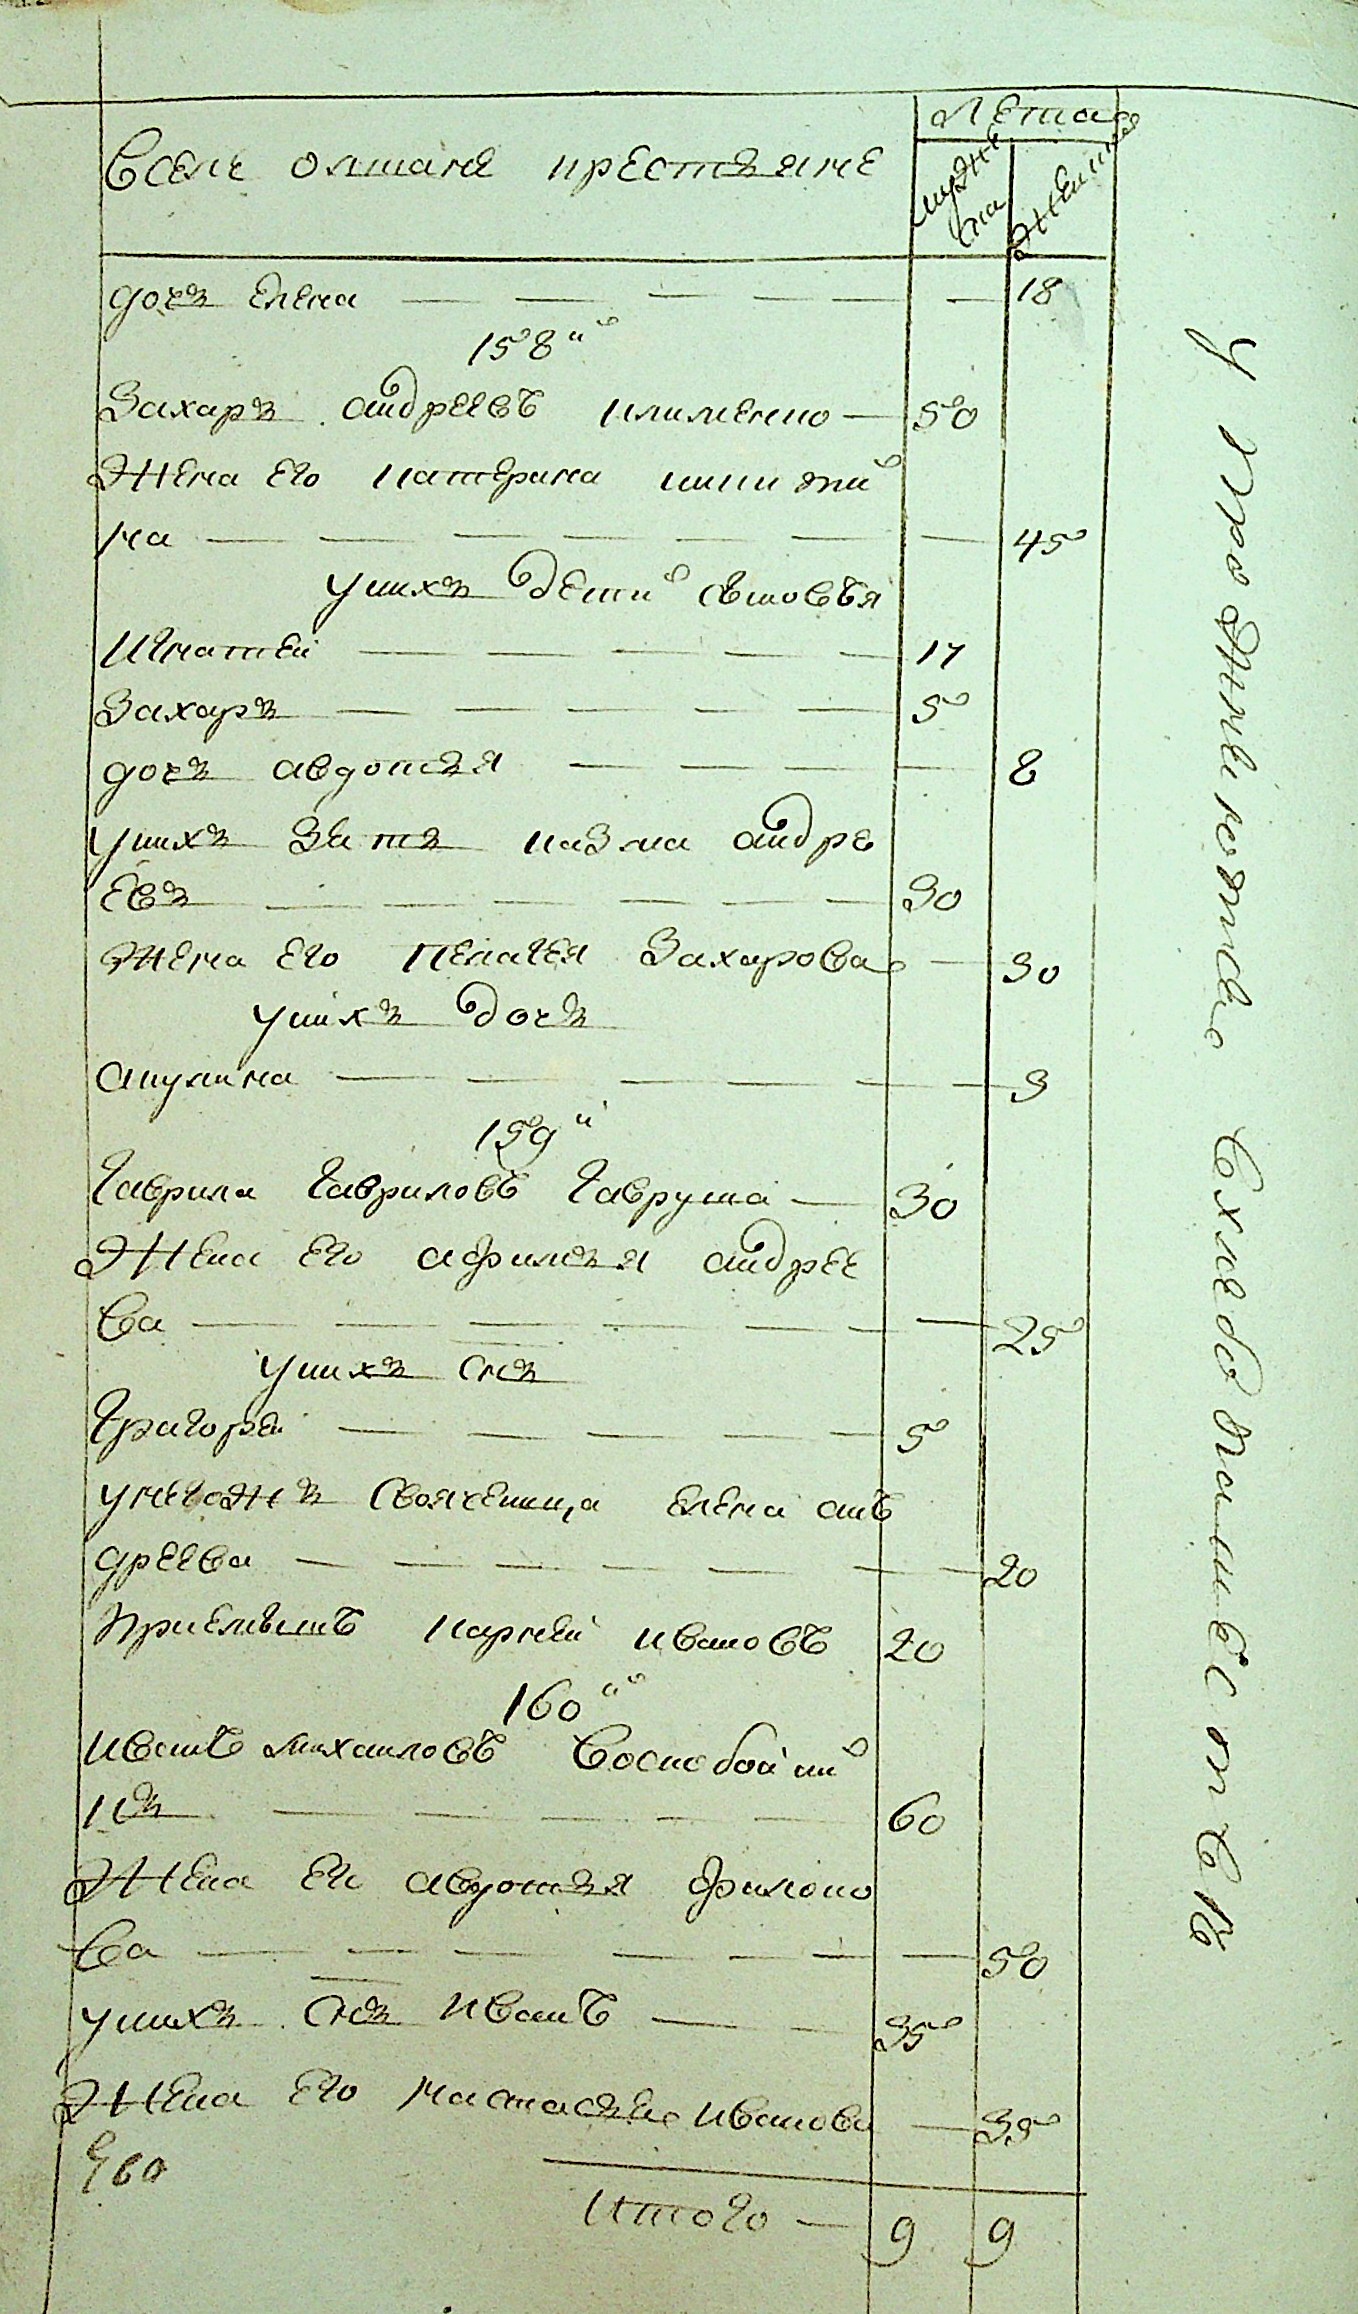 Лета
Вселе олшане крестьяне
мужеска
женска
дочь Елена — — — — — — 18
158й
Захаръ андреевъ клименко — 50
Жена Его катерина
на — — — — — — — 45
унихъ детей сыновья
Игнатей — — — — — 17
Захаръ — — — — — 5
дочь авдотья — — — — 8
унихъ Зять казма андре
Евъ — — — — — — 30
жена Его пелагея Захарова — 30
унихъ дочь
акулина — — — — — — 3
159й
Гаврила Гавриловъ Гавруша — 30
Жена Его афимья андрее
ва — — — — — — — 25
унихъ снъ
Григорей — — — — — 5
унегожъ свояченица елена анъ
дреева — — — — — — — 20
приемышъ карней ивановъ 20
160й
иванъ михаиловъ Воскобойни
къ — — — — — 60
Жена Ег авдотья филипо
ва — — — — — — — 50
унихъ снъ иванъ — — 35
Жена Его настасья иванова — 35
Ева
итого — 9 9